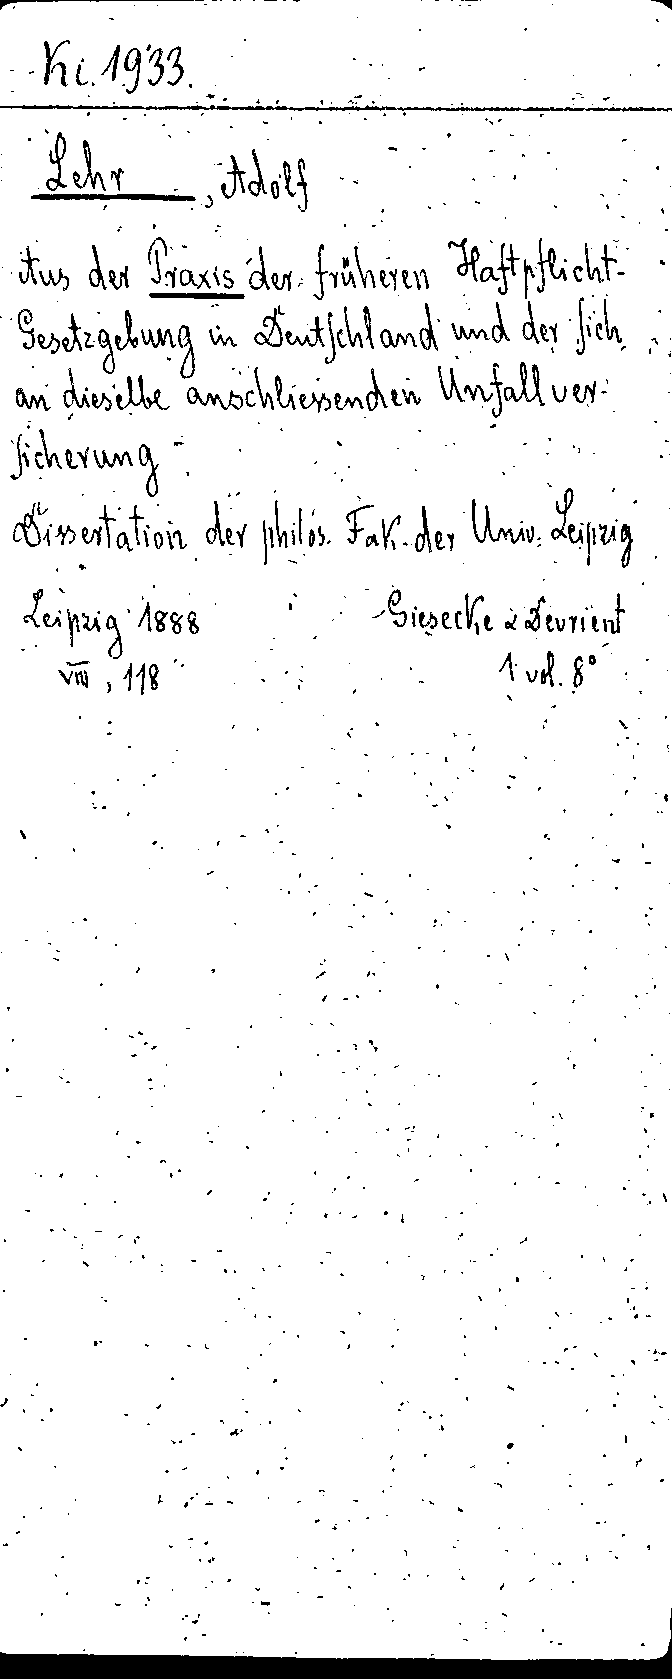 Ki. 1933.
Lehr, Adolf
Aus der Praxis der früheren Haftpflicht-
Gesetzgebung in Deutschland und der sich
an dieselbe anschliessenden Unfallver-
sicherung
Dissertation der philos. Fak. der Univ. Leipzig
Leipzig 1888 Giesecke & Devrient
VIII, 118 1 vol. 8°